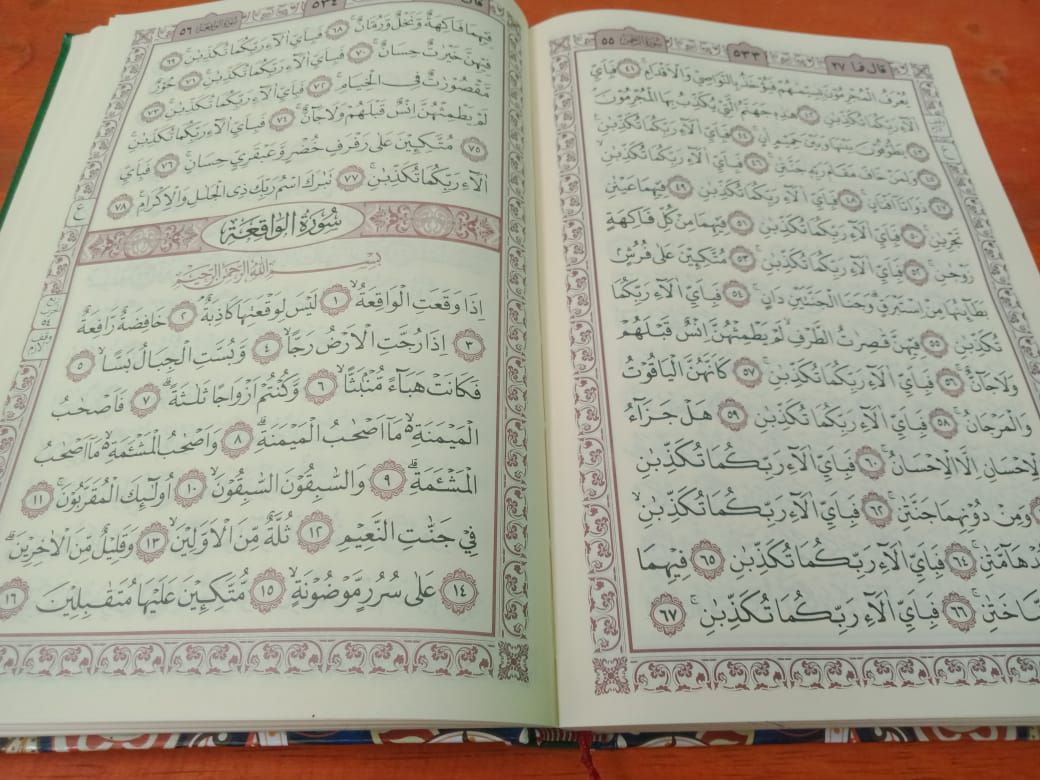 قال فما ٢٧ ٥٣٣ سورة الرحمن ٥٥
يُعْرَفُ الْمُجْرِمُوْنَ بِسِيْمٰهُمْ فَيُؤْخَذُ بِالنَّوَاصِيْ وَالْاَقْدَامِۚ ٤١ فَبِاَيِّ
اٰلَاۤءِ رَبِّكُمَا تُكَذِّبٰنِ ٤٢ هٰذِهٖ جَهَنَّمُ الَّتِيْ يُكَذِّبُ بِهَا الْمُجْرِمُوْنَۘ
٤٣ يَطُوْفُوْنَ بَيْنَهَا وَبَيْنَ حَمِيْمٍ اٰنٍۚ ٤٤ فَبِاَيِّ اٰلَاۤءِ رَبِّكُمَا تُكَذِّبٰنِࣖ
٤٥ وَلِمَنْ خَافَ مَقَامَ رَبِّهٖ جَنَّتٰنِۚ ٤٦ فَبِاَيِّ اٰلَاۤءِ رَبِّكُمَا تُكَذِّبٰنِۙ
٤٧ ذَوَاتَآ اَفْنَانٍۚ ٤٨ فَبِاَيِّ اٰلَاۤءِ رَبِّكُمَا تُكَذِّبٰنِ ٤٩ فِيْهِمَا عَيْنٰنِ
تَجْرِيٰنِۚ ٥٠ فَبِاَيِّ اٰلَاۤءِ رَبِّكُمَا تُكَذِّبٰنِ ٥١ فِيْهِمَا مِنْ كُلِّ فَاكِهَةٍ
زَوْجٰنِۚ ٥٢ فَبِاَيِّ اٰلَاۤءِ رَبِّكُمَا تُكَذِّبٰنِۚ ٥٣ مُتَّكِـِٕيْنَ عَلٰى فُرُشٍۢ
بَطَاۤىِٕنُهَا مِنْ اِسْتَبْرَقٍۗ وَجَنَا الْجَنَّتَيْنِ دَانٍۚ ٥٤ فَبِاَيِّ اٰلَاۤءِ رَبِّكُمَا
تُكَذِّبٰنِ ٥٥ فِيْهِنَّ قٰصِرٰتُ الطَّرْفِۙ لَمْ يَطْمِثْهُنَّ اِنْسٌ قَبْلَهُمْ
وَلَا جَاۤنٌّۚ ٥٦ فَبِاَيِّ اٰلَاۤءِ رَبِّكُمَا تُكَذِّبٰنِۚ ٥٧ كَاَنَّهُنَّ الْيَاقُوْتُ
وَالْمَرْجَانُۚ ٥٨ فَبِاَيِّ اٰلَاۤءِ رَبِّكُمَا تُكَذِّبٰنِ ٥٩ هَلْ جَزَاۤءُ
الْاِحْسَانِ اِلَّا الْاِحْسَانُۚ ٦٠ فَبِاَيِّ اٰلَاۤءِ رَبِّكُمَا تُكَذِّبٰنِ
وَمِنْ دُوْنِهِمَا جَنَّتٰنِۚ ٦٢ فَبِاَيِّ اٰلَاۤءِ رَبِّكُمَا تُكَذِّبٰنِۙ
مُدْهَاۤمَّتٰنِۚ ٦٤ فَبِاَيِّ اٰلَاۤءِ رَبِّكُمَا تُكَذِّبٰنِۚ ٦٥ فِيْهِمَا
نَضَّاخَتٰنِۚ ٦٦ فَبِاَيِّ اٰلَاۤءِ رَبِّكُمَا تُكَذِّبٰنِۚ ٦٧
قال ٥٣٤ سورة الواقعة ٥٦
فِيْهِمَا فَاكِهَةٌ وَّنَخْلٌ وَّرُمَّانٌۚ ٦٨ فَبِاَيِّ اٰلَاۤءِ رَبِّكُمَا تُكَذِّبٰنِۚ ٦٩
فِيْهِنَّ خَيْرٰتٌ حِسَانٌۚ ٧٠ فَبِاَيِّ اٰلَاۤءِ رَبِّكُمَا تُكَذِّبٰنِۚ ٧١ حُوْرٌ
مَّقْصُوْرٰتٌ فِى الْخِيَامِۚ ٧٢ فَبِاَيِّ اٰلَاۤءِ رَبِّكُمَا تُكَذِّبٰنِۚ ٧٣
لَمْ يَطْمِثْهُنَّ اِنْسٌ قَبْلَهُمْ وَلَا جَاۤنٌّۚ ٧٤ فَبِاَيِّ اٰلَاۤءِ رَبِّكُمَا تُكَذِّبٰنِۚ
٧٥ مُتَّكِـِٕيْنَ عَلٰى رَفْرَفٍ خُضْرٍ وَّعَبْقَرِيٍّ حِسَانٍۚ ٧٦ فَبِاَيِّ
اٰلَاۤءِ رَبِّكُمَا تُكَذِّبٰنِۚ ٧٧ تَبٰرَكَ اسْمُ رَبِّكَ ذِى الْجَلٰلِ وَالْاِكْرَامِࣖ ٧٨
سُوْرَةُ الْوَاقِعَةِ
بِسْمِ اللّٰهِ الرَّحْمٰنِ الرَّحِيْمِ
اِذَا وَقَعَتِ الْوَاقِعَةُۙ ١ لَيْسَ لِوَقْعَتِهَا كَاذِبَةٌۘ ٢ خَافِضَةٌ رَّافِعَةٌ
٣ اِذَا رُجَّتِ الْاَرْضُ رَجًّاۙ ٤ وَّبُسَّتِ الْجِبَالُ بَسًّاۙ ٥
فَكَانَتْ هَبَاۤءً مُّنْۢبَثًّاۙ ٦ وَّكُنْتُمْ اَزْوَاجًا ثَلٰثَةًۗ ٧ فَاَصْحٰبُ
الْمَيْمَنَةِۙ مَآ اَصْحٰبُ الْمَيْمَنَةِۗ ٨ وَاَصْحٰبُ الْمَشْـَٔمَةِۙ مَآ اَصْحٰبُ
الْمَشْـَٔمَةِۗ ٩ وَالسّٰبِقُوْنَ السّٰبِقُوْنَۙ ١٠ اُولٰۤىِٕكَ الْمُقَرَّبُوْنَۚ ١١
فِيْ جَنّٰتِ النَّعِيْمِ ١٢ ثُلَّةٌ مِّنَ الْاَوَّلِيْنَۙ ١٣ وَقَلِيْلٌ مِّنَ الْاٰخِرِيْنَۗ
١٤ عَلٰى سُرُرٍ مَّوْضُوْنَةٍۙ ١٥ مُّتَّكِـِٕيْنَ عَلَيْهَا مُتَقٰبِلِيْنَ ١٦